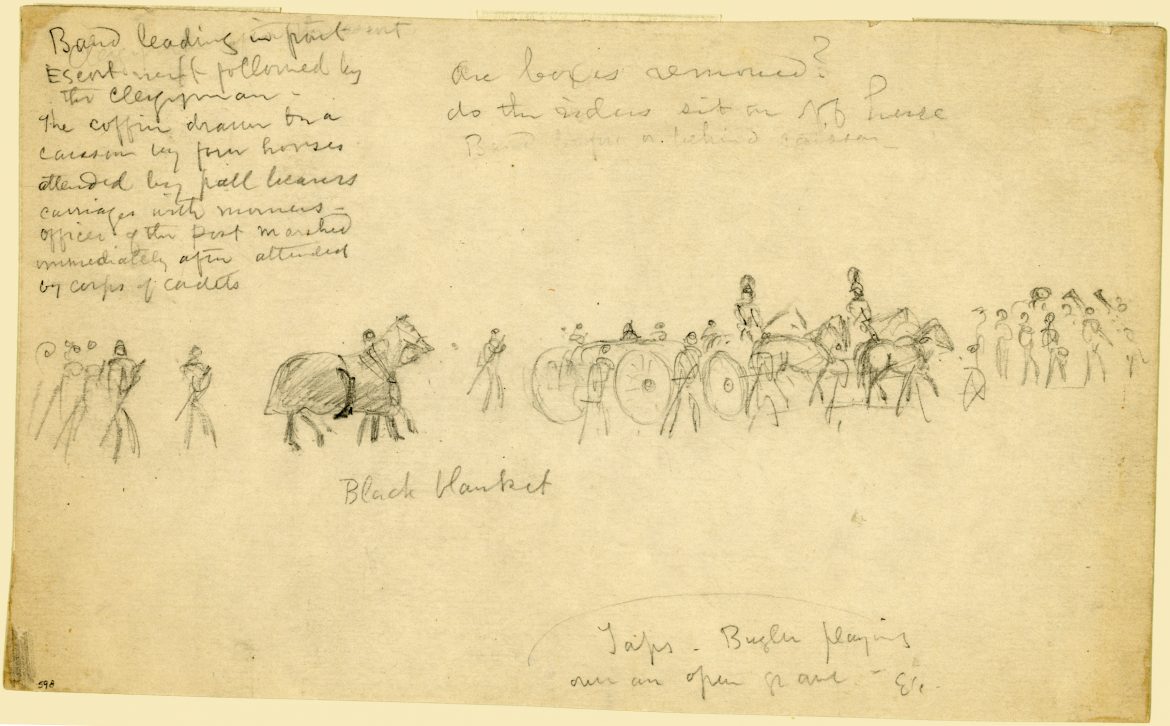 Band leading in post
Escort next followed by
the Clergyman -
The coffin drawn on a
caisson by four horses
attended by pall bearers
carriages with mourners -
officers of the post marched
immediately after attended
by corps of cadets
Are boxes removed?
do the riders sit on off horse
Band before or behind caisson
Black blanket
Taps - Bugler playing
over an open grave - &c.
598